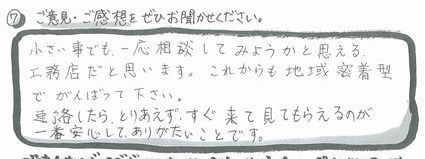 ⑦ ご意見・ご感想をぜひお聞かせください。
小さい事でも、一応相談してみようかと思える、
工務店だと思います。これからも地域密着型
でがんばって下さい。
連絡したら、とりあえず、すぐ来て見てもらえるのが
一番安心して、ありがたいことです。